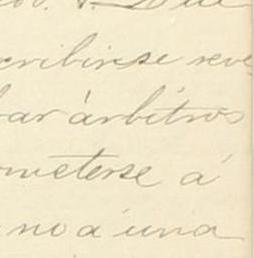 cribirse reve
bar árbitros
meterse á
no á una